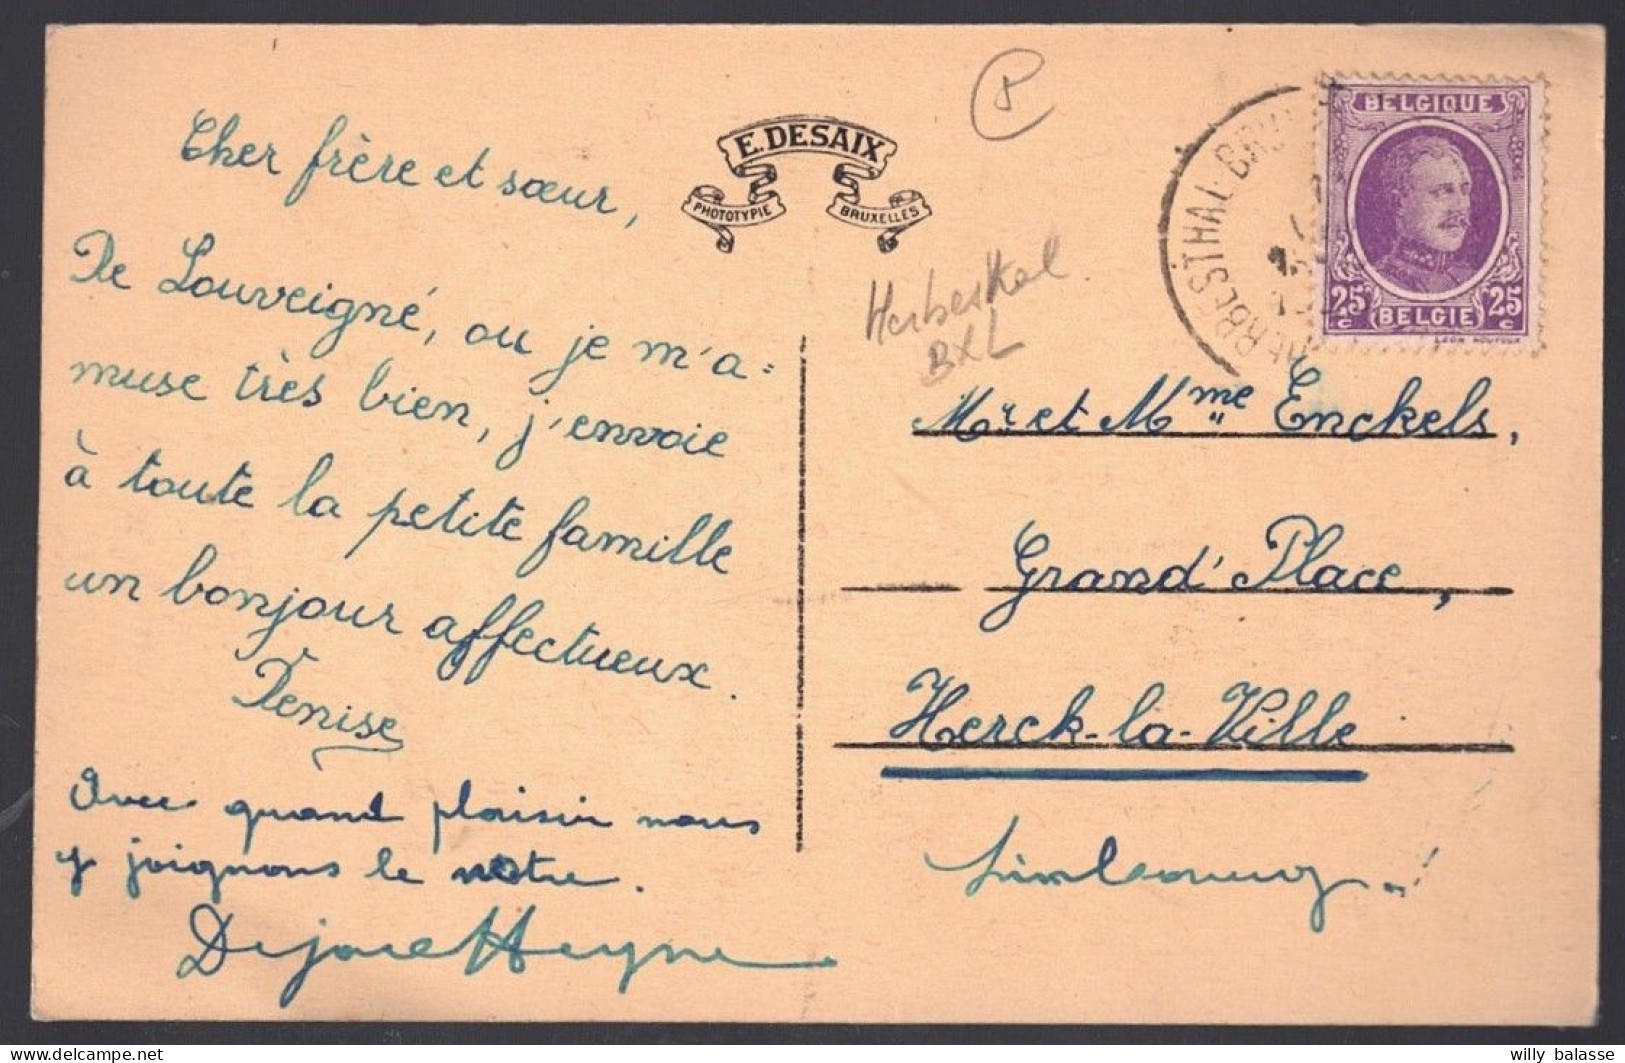 Cher frère et sœur,
De Louveigné, ou je m'a=
muse très bien, j'envoie
à toute la petite famille
un bonjour affectueux.
Denise
Avec quand plaisir nous
y joignons le notre.
E. DESAIX
PHOTOTYPIE BRUXELLES
Herbesthal
BXL
HERBESTHAL
BELGIQUE
25c BELGIE 25c
LEON HOUYOUX
Mr et Mme Enckels,
Grand' Place,
Herck-la-Ville
Limbourg.
delcampe.net
willy balasse